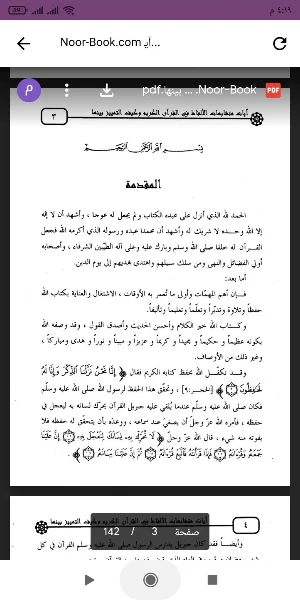 ٤:١٩ م
Noor-Book.com آي...
Noor-Book. ... بينها.pdf
PDF
P
آيات متشابهات الألفاظ في القرآن الكريم وكيف التمييز بينها
٣
بسم الله الرحمن الرحيم
المقدمة
الحمد لله الذي أنزل على عبده الكتاب ولم يجعل له عوجا، وأشهد أن لا إله
إلا الله وحده لا شريك له وأشهد أن محمدا عبده ورسوله الذي أكرمه الله فجعل
القرآن له خلقا صلى الله وسلم وبارك عليه وعلى آله الطيبين الشرفاء، وأصحابه
أولي الفضائل والنهى ومن سلك سبيلهم واهتدى بهديهم إلى يوم الدين.
أما بعد:
فإن أهم المهمات وأولى ما تعمر به الأوقات، الاشتغال والعناية بكتاب الله
حفظاً وتلاوة وتدبراً وتعلماً وتعليماً وتأليفاً.
وكتاب الله خير الكلام وأحسن الحديث وأصدق القول، وقد وصفه الله
بكونه عظيماً وحكيماً ومجيداً وكريماً وعزيزاً ومبيناً ونوراً وهدى ومباركاً،
وغير ذلك من الأوصاف.
وقد تكفل الله بحفظ كتابه الكريم فقال ﴿إِنَّا نَحْنُ نَزَّلْنَا الذِّكْرَ وَإِنَّا لَهُ
لَحَافِظُونَ﴾ [الحجر:٩]، وتحقق هذا الحفظ لرسول الله صلى الله عليه وسلم
فكان صلى الله عليه وسلم عندما يلقي عليه جبريل القرآن يحرك لسانه به ليعجل في
حفظه، فأمره الله عز وجل أن ينصت عند سماعه، ووعده بأن يتحقق له حفظه فلا
يفوته منه شيء، قال الله عز وجل ﴿لَا تُحَرِّكْ بِهِ لِسَانَكَ لِتَعْجَلَ بِهِ إِنَّ عَلَيْنَا
جَمْعَهُ وَقُرْآنَهُ فَإِذَا قَرَأْنَاهُ فَاتَّبِعْ قُرْآنَهُ ثُمَّ إِنَّ عَلَيْنَا بَيَانَهُ﴾.
آيات متشابهات الألفاظ في القرآن الكريم وكيف التمييز بينها
٤
صفحة 3 / 142
وأيضاً فقد كان جبريل يدارس الرسول صلى الله عليه وسلم القرآن في كل